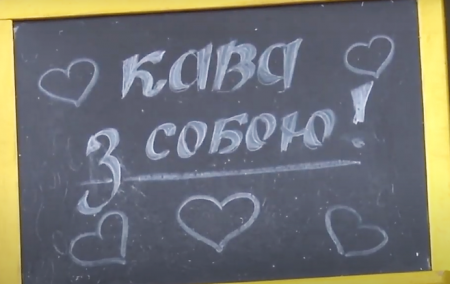 кава
з собою!